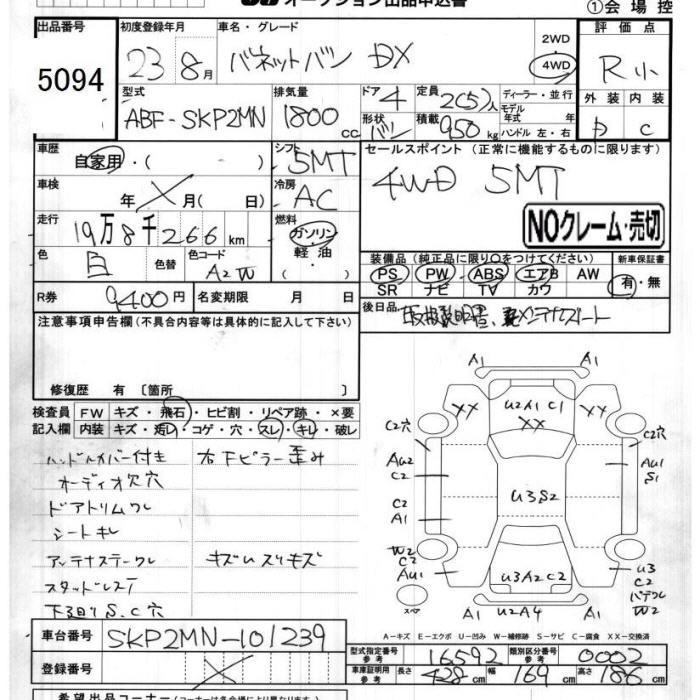 オークション出品申込書
①会場控
出品番号
5094
初度登録年月
23 8月
車名・グレード
バネットバン DX
2WD
4WD
評価点
R小
型式
ABF-SKP2MN
排気量
1800 cc
ドア
4
定員
2(5)人
ディーラー・並行
モデル年式 年
ハンドル 左・右
形状
バン
積載
950 kg
外装 内装
D C
車歴
自家用・( )
シフト
5MT
セールスポイント (正常に機能するものに限ります)
4WD 5MT
車検
年 × 月( 日)
冷房
AC
NOクレーム・売切
走行
19万8千266 km
燃料
ガソリン
軽油
・( )
色
白
色替
色コード
A2W
装備品 (純正品に限り○をつけてください)
PS PW ABS エアB AW
SR ナビ TV カワ
新車保証書
有・無
R券
9400円
名変期限 月 日
後日品
取扱説明書、
注意事項申告欄 (不具合内容等は具体的に記入して下さい)
修復歴 有 〔箇所 〕
検査員記入欄
FW キズ・飛石・ヒビ割・リペア跡・×要
内装 キズ・汚レ・コゲ・穴・スレ・キレ・破レ
ハンドルカバー付き
右下ピラー歪み
オーディオ欠穴
ドアトリムワレ
シートキレ
アンテナステーワレ
キズUスリキズ
スタッドレス
下廻りS.C穴
A1 A1
XX U2A1 C1 XX
XX
C2穴 C2穴
AU2 C2
AU1 S1
C2 A1
U3S2
W2 C2 AU1
U3 C2 バデワレ W2
U3A2C2
スペア
A1 U2A4 A1
A-キズ E-エクボ U-凹み W-補修跡 S-サビ C-腐食 XX-交換済
車台番号
SKP2MN-101239
登録番号
×
型式指定番号 参考
16592
類別区分番号 参考
0002
車庫証明用 参考
長さ 428cm
幅 169cm
高さ 186cm
希望出品コーナー (コーナーは各会場により異なります)